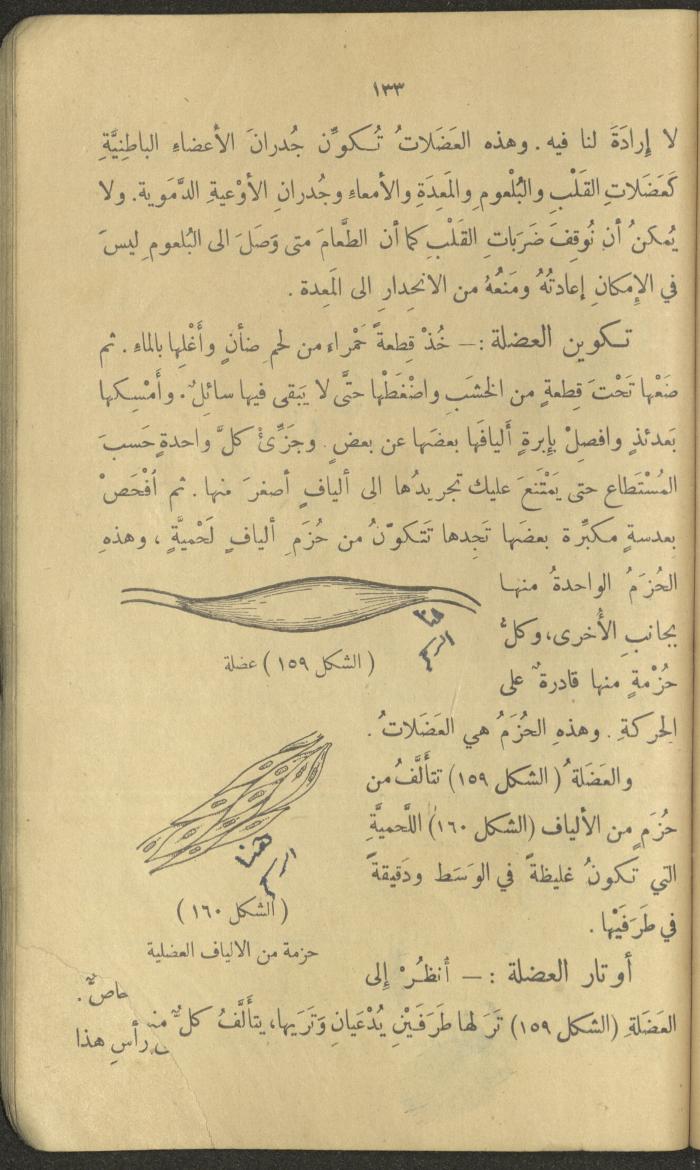 ١٣٣
لا إِرادَةَ لنا فيه . وهذه العَضَلاتُ تُـكوِّن جُدرانَ الأعضاءِ الباطِنِيَّةِ
كَعَضَلاتِ القَلْبِ والبُلْعومِ والمَعِدَةِ والأمعاءِ وجُدرانِ الأوْعيةِ الدَّمَوية . ولا
يُمكنُ أن نُوقِفَ ضَرَباتِ القَلْبِ كما أن الطَّعامَ متى وَصَلَ الى البُلعومِ ليسَ
في الإِمكانِ إعادتُهُ ومَنعُهُ من الانحِدارِ الى المَعِدة .
تـكوين العضلة : — خُذْ قِطعةً حَمْراء من لحمِ ضأنٍ وأَغْلِها بالماءِ . ثم
ضَعْها تَحْتَ قِطعةٍ من الخشَبِ واضْغَطْها حتَّى لا يَبقى فيها سائلٌ . وأَمْسِـكها
بَعدئذٍ وافصِلْ بإبرةٍ أَليافَها بعضَها عن بعضٍ . وجَزِّئْ كلَّ واحدةٍ حَسبَ
المُسْتَطاع حتى يَمْتَنعَ عليك تجريدُها الى أليافٍ أصغرَ منها . ثم اَفْحَصْ
بعدسةٍ مكبِّرة بعضَها تَجِدها تَتكوّنُ من حُزَمِ أليافٍ لَحْميَّةٍ ، وهذهِ
الحُزَمُ الواحدةُ منهـا
بجانبِ الأُخرى ، وكلُّ
حُزْمةٍ منها قادرةٌ على
الحركةِ . وهذهِ الحُزَمُ هي العَضَلاتُ .
هنا
( الشكل ١٥٩ ) عضلة
والعَضَلةُ ( الشكل ١٥٩ ) تتأَلَّفُ من
حُزَمٍ من الألياف (الشكل ١٦٠) اللَّحميَّةِ
التي تـكونُ غليظةً في الوَسَط ودَقيقةً
في طَرَفَيْها .
هنا
( الشكل ١٦٠ )
حزمة من الالياف العضلية
أوتار العضلة : — أنظُـرْ إلى
العَضَلةِ (الشكل ١٥٩) تَرَ لها طَرَفَيْنِ يُدْعَيانِ وَتَرَيها، يتأَلَّفُ كلٌّ
خاصٌّ .
رأسِ هذا